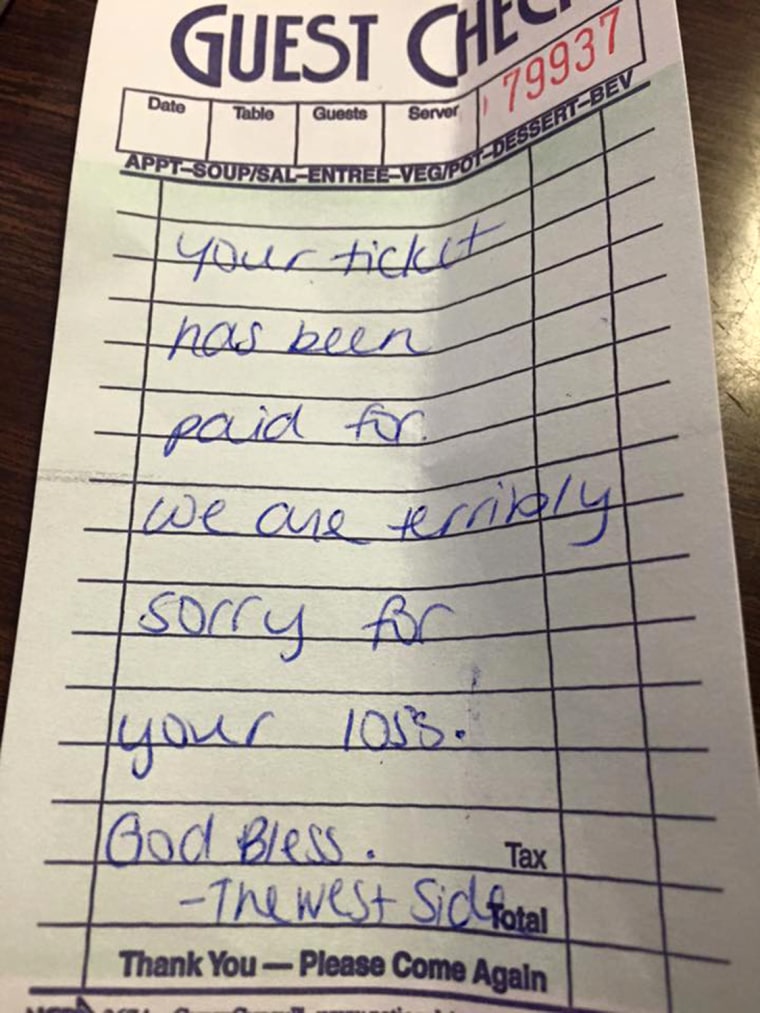 GUEST CHECK
79937
Date Table Guests Server
APPT–SOUP/SAL–ENTREE–VEG/POT–DESSERT–BEV
your ticket
has been
paid for.
we are terribly
sorry for
your loss.
God Bless. Tax
-The west Side Total
Thank You — Please Come Again